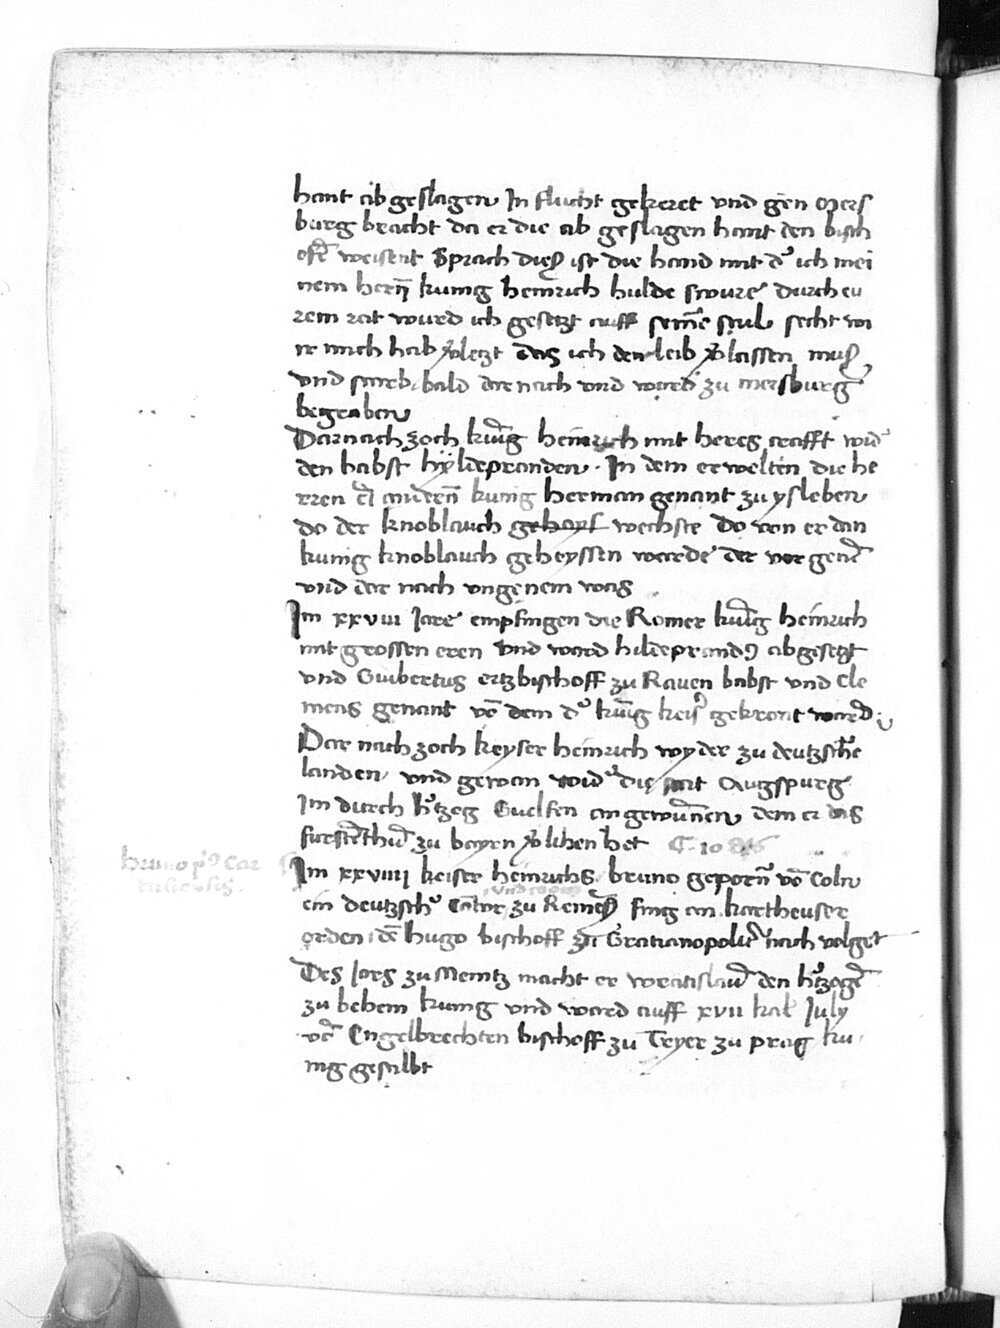 hant abgeslagen In flucht gekeret vnd gen Mers
burg bracht da er die ab geslagen hant den bisch
ofen weisent Sprach diß ist die hand mit der ich mei
nem herrn kunig heinrich hulde swure durch eu
rem rat wurd ich gesetzt auff seinen stul secht wi
ir mich hab verletzt das ich den leib verlassen muß
vnd starb bald dar nach vnd ward zu mersburg
begraben
Darnach zoch kunig heinrich mit heres crafft wider
den babst hyldepranden In dem erwelten die he
rren ein anderen kunig herman genant zu ysleben
do der knoblauch wechste do von er dan
kunig knoblauch geheyssen warde der vor genem
vnd dar nach vngenem was
Im xxviii Jare empfingen die Romer kunig heinrich
mit grossen eren vnd ward hildeprandus abgesetzt
vnd Guibertus ertzbischoff zu Raven babst vnd Cle
mens genant von dem der kunig keiser gekront ward
Dar nach zoch keyser heinrich wyder zu deutzschen
landen vnd gewan wider die stat Augspurg
Im durch hertzog Guelfen an gewunnen dem er das
furstenthum zu bayrn verlihen het C. 1086
bruno primus Car
tusiensis.
Im xxviiij keiser heinrichs bruno geporn von Coln
ein deutzscher Cantor zu Remeß fing an kartheuser
orden den hugo bischoff zu Gratianopolis nach volget
Des Jars zu Meintz macht er wratislaum den hertzogen
zu behem kunig vnd ward auff xvii kal July
von Engelbrechten bischoff zu Tryer zu prag ku
nig gesalbt